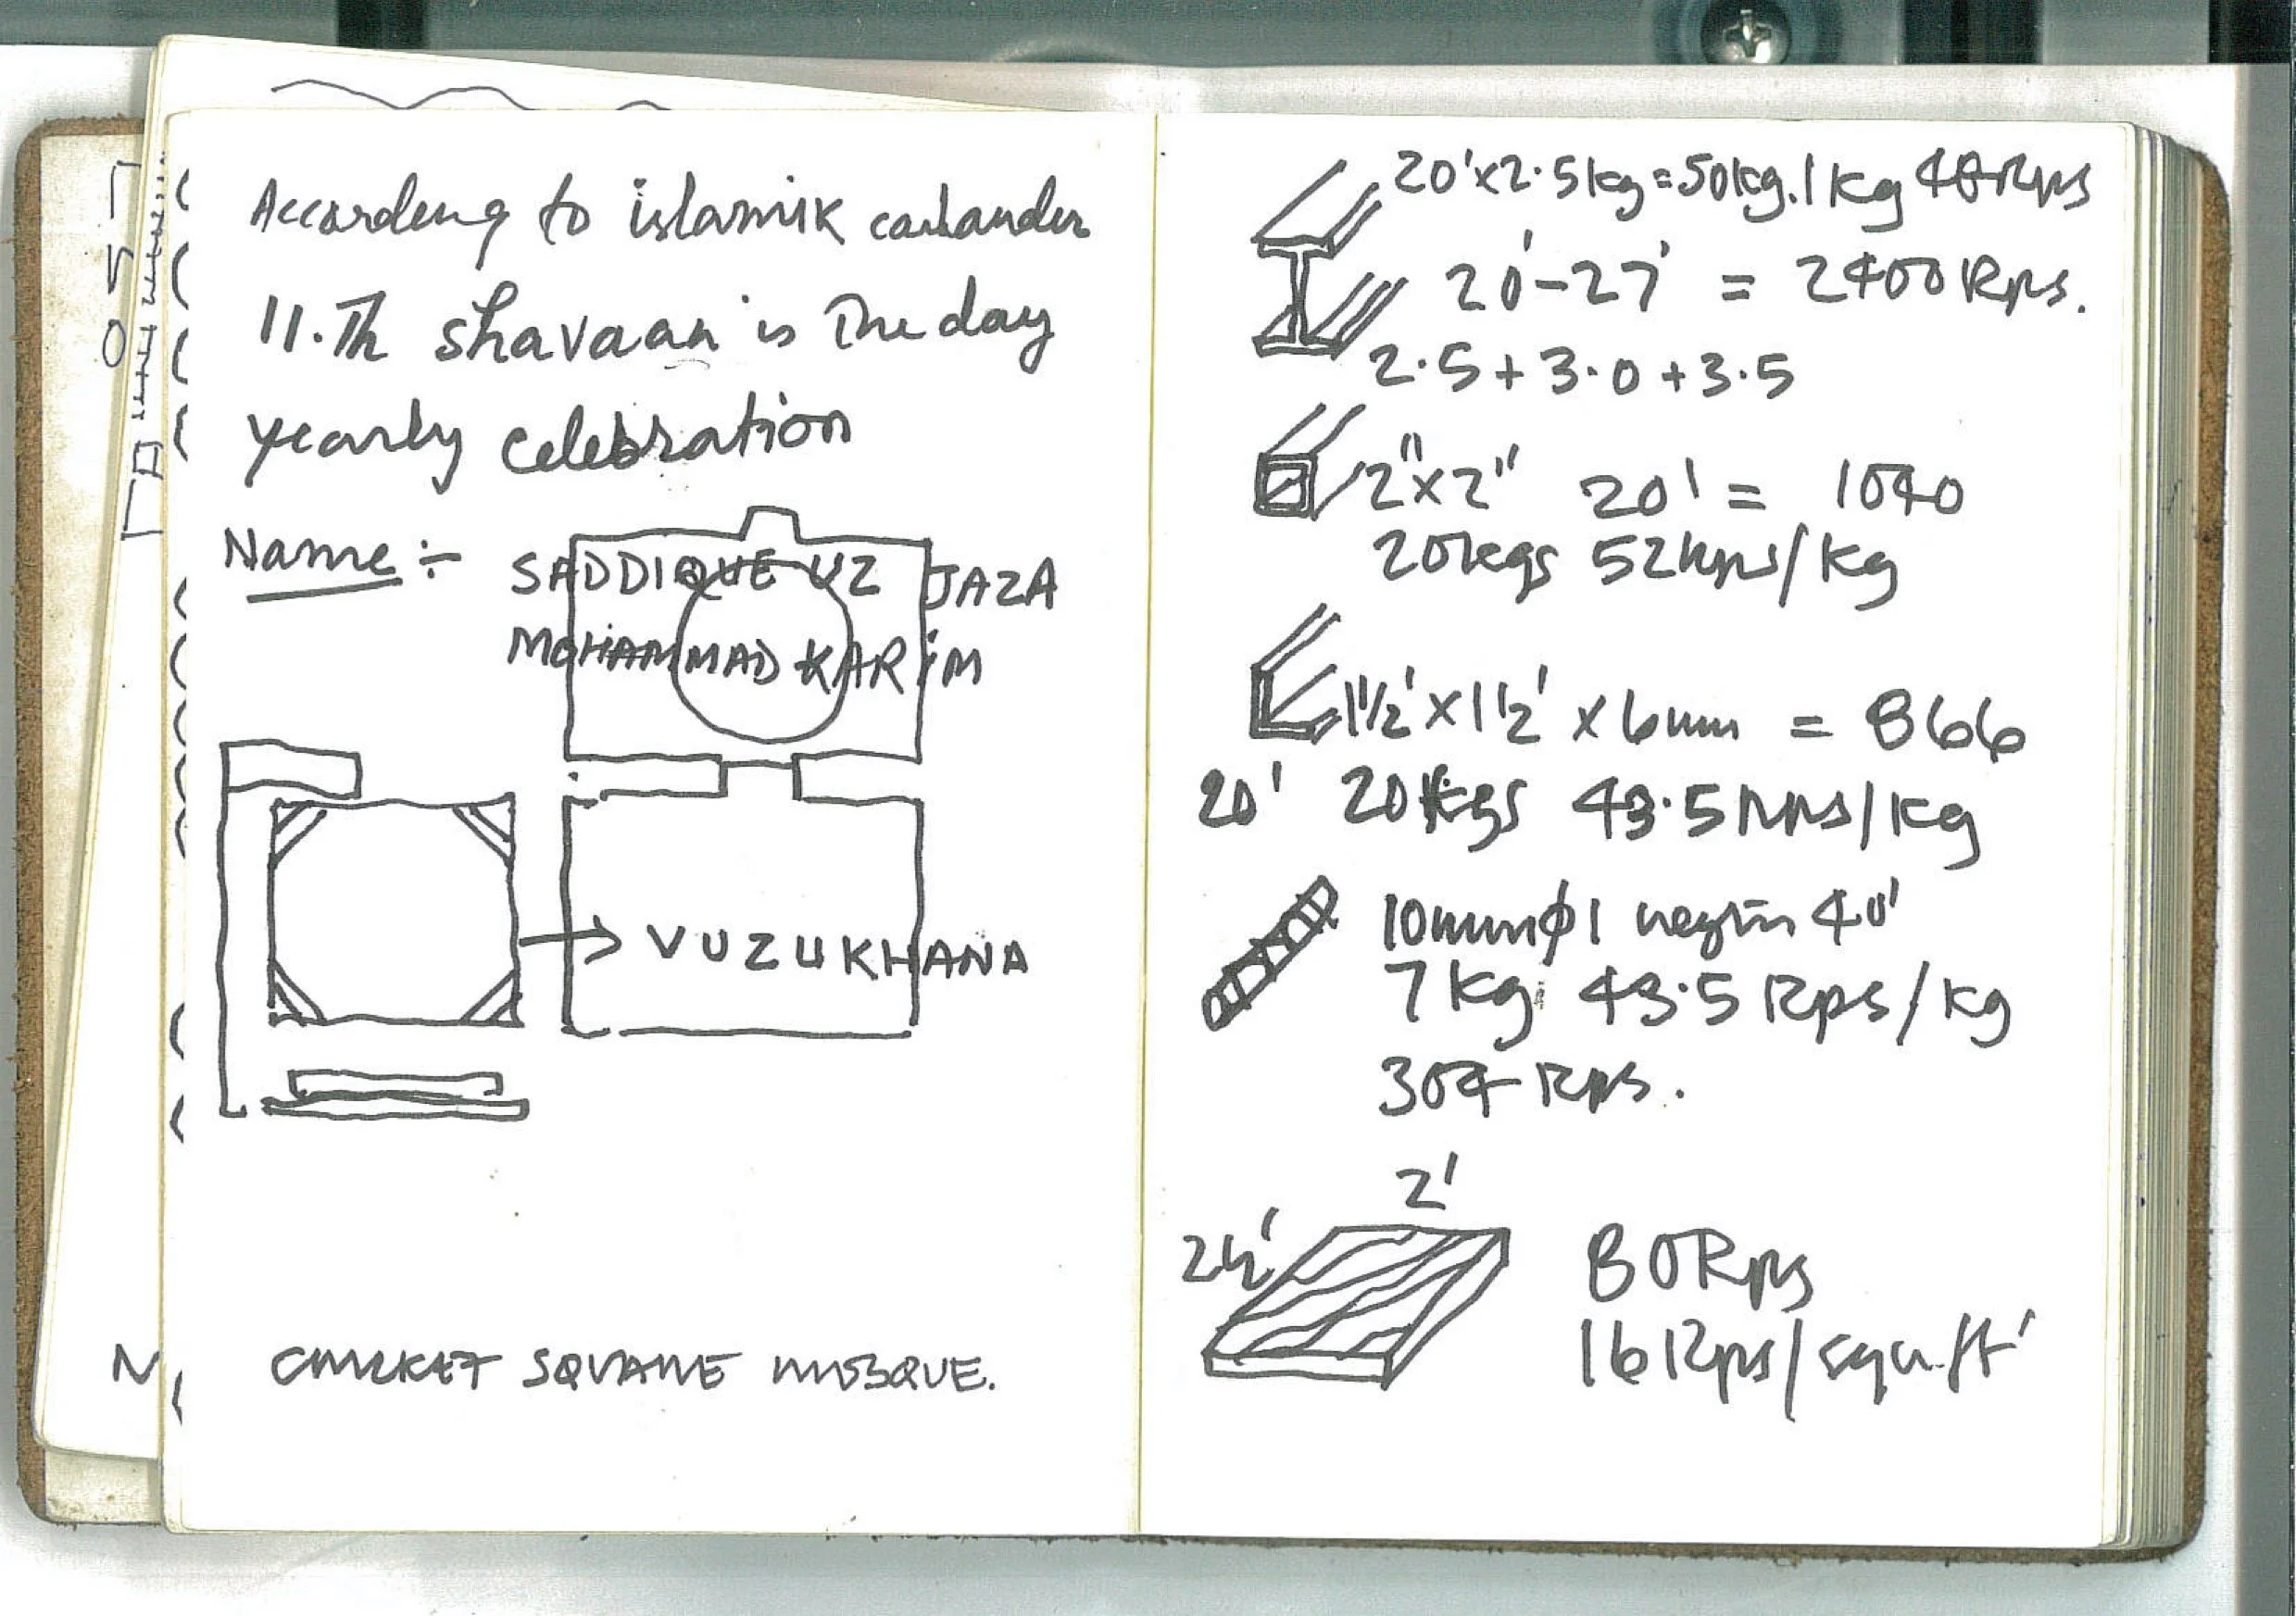 According to islamik callander
11.Th shavaan is The day
yearly celebration
Name :-
SADDIQUE UZ JAZA
MOHAMMAD KARIM
VUZUKHANA
SQUARE MOSQUE.
20'x2.5kg=50kg.1kg 48Rps
20'-27' = 2400 Rps.
2.5+3.0+3.5
2"x2" 20' = 1040
20kgs 52Rps/kg
1½'x1½' x 6mm = 866
20' 20kgs 43.5Rps/kg
10mmϕ 1 40'
7kg 43.5 Rps/kg
304 Rps.
2'
2½'
80Rps
16Rps/squ.ft'
N
057